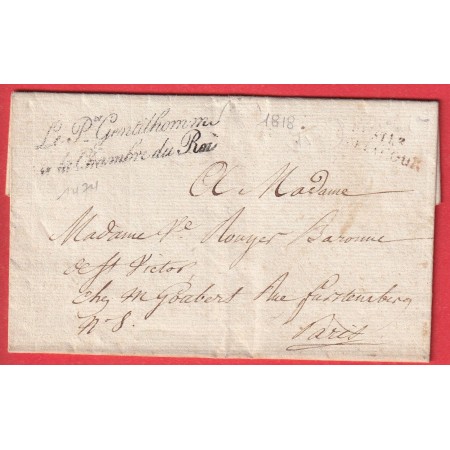 Le Pr Gentilhomme
de la Chambre du Roi
1818
A Madame
Madame Ve Rouyer Baronne
de St Victor,
chez M Goabert Rue furstemberg
N° 8.
Paris